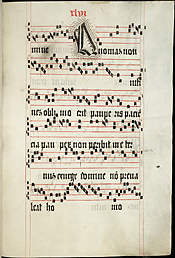 xlvi
non
in fi
nem obli uio erit paupe ris pacie
cia pau perum non peribit in eter
num exurge domine nō preua
leat ho mo